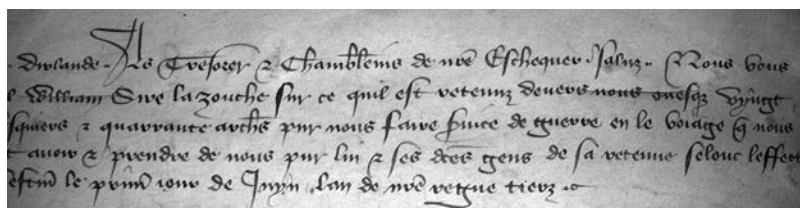 Dirlande. As Tresorer & Chamblems de nre Eschequer. Saluz. Nous vous
William Sire la Zouche sur ce quil est retenuz devers nous ovesqz vyngt
squiers & quarrante archs pur nous faire svice de guerre en le voiage q nous
avoir & prendre de nous pur lui & ses dces gens de sa retenue selonc leffect
le prim jour de Juyn lan de nre regne tierz